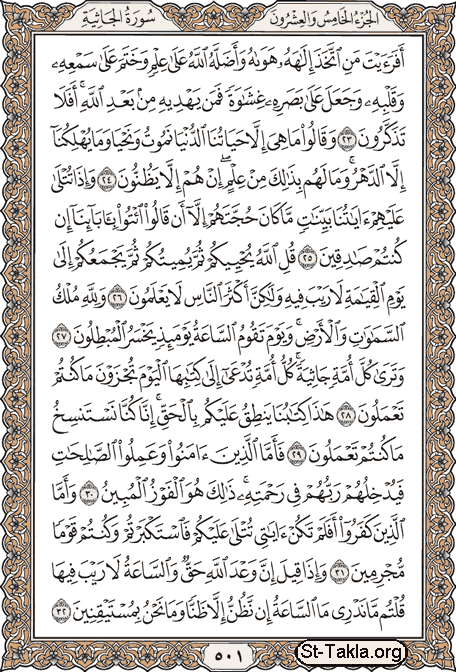 سُورَةُ الجَاثِيَةِ الجُزْءُ الخَامِسُ وَالعِشْرُونَ
أَفَرَءَيْتَ مَنِ ٱتَّخَذَ إِلَٰهَهُۥ هَوَىٰهُ وَأَضَلَّهُ ٱللَّهُ عَلَىٰ عِلْمٍ وَخَتَمَ عَلَىٰ سَمْعِهِۦ
وَقَلْبِهِۦ وَجَعَلَ عَلَىٰ بَصَرِهِۦ غِشَٰوَةً فَمَن يَهْدِيهِ مِنۢ بَعْدِ ٱللَّهِ ۚ أَفَلَا
تَذَكَّرُونَ ٢٣ وَقَالُوا۟ مَا هِىَ إِلَّا حَيَاتُنَا ٱلدُّنْيَا نَمُوتُ وَنَحْيَا وَمَا يُهْلِكُنَآ
إِلَّا ٱلدَّهْرُ ۚ وَمَا لَهُم بِذَٰلِكَ مِنْ عِلْمٍ ۖ إِنْ هُمْ إِلَّا يَظُنُّونَ ٢٤ وَإِذَا تُتْلَىٰ
عَلَيْهِمْ ءَايَٰتُنَا بَيِّنَٰتٍ مَّا كَانَ حُجَّتَهُمْ إِلَّآ أَن قَالُوا۟ ٱئْتُوا۟ بِـَٔابَآئِنَآ إِن
كُنتُمْ صَٰدِقِينَ ٢٥ قُلِ ٱللَّهُ يُحْيِيكُمْ ثُمَّ يُمِيتُكُمْ ثُمَّ يَجْمَعُكُمْ إِلَىٰ
يَوْمِ ٱلْقِيَٰمَةِ لَا رَيْبَ فِيهِ وَلَٰكِنَّ أَكْثَرَ ٱلنَّاسِ لَا يَعْلَمُونَ ٢٦ وَلِلَّهِ مُلْكُ
ٱلسَّمَٰوَٰتِ وَٱلْأَرْضِ ۚ وَيَوْمَ تَقُومُ ٱلسَّاعَةُ يَوْمَئِذٍ يَخْسَرُ ٱلْمُبْطِلُونَ ٢٧
وَتَرَىٰ كُلَّ أُمَّةٍ جَاثِيَةً ۚ كُلُّ أُمَّةٍ تُدْعَىٰٓ إِلَىٰ كِتَٰبِهَا ٱلْيَوْمَ تُجْزَوْنَ مَا كُنتُمْ
تَعْمَلُونَ ٢٨ هَٰذَا كِتَٰبُنَا يَنطِقُ عَلَيْكُم بِٱلْحَقِّ ۚ إِنَّا كُنَّا نَسْتَنسِخُ
مَا كُنتُمْ تَعْمَلُونَ ٢٩ فَأَمَّا ٱلَّذِينَ ءَامَنُوا۟ وَعَمِلُوا۟ ٱلصَّٰلِحَٰتِ
فَيُدْخِلُهُمْ رَبُّهُمْ فِى رَحْمَتِهِۦ ۚ ذَٰلِكَ هُوَ ٱلْفَوْزُ ٱلْمُبِينُ ٣٠ وَأَمَّا
ٱلَّذِينَ كَفَرُوٓا۟ أَفَلَمْ تَكُنْ ءَايَٰتِى تُتْلَىٰ عَلَيْكُمْ فَٱسْتَكْبَرْتُمْ وَكُنتُمْ قَوْمًا
مُّجْرِمِينَ ٣١ وَإِذَا قِيلَ إِنَّ وَعْدَ ٱللَّهِ حَقٌّ وَٱلسَّاعَةُ لَا رَيْبَ فِيهَا
قُلْتُم مَّا نَدْرِى مَا ٱلسَّاعَةُ إِن نَّظُنُّ إِلَّا ظَنًّا وَمَا نَحْنُ بِمُسْتَيْقِنِينَ ٣٢
٥٠١
St-Takla.org